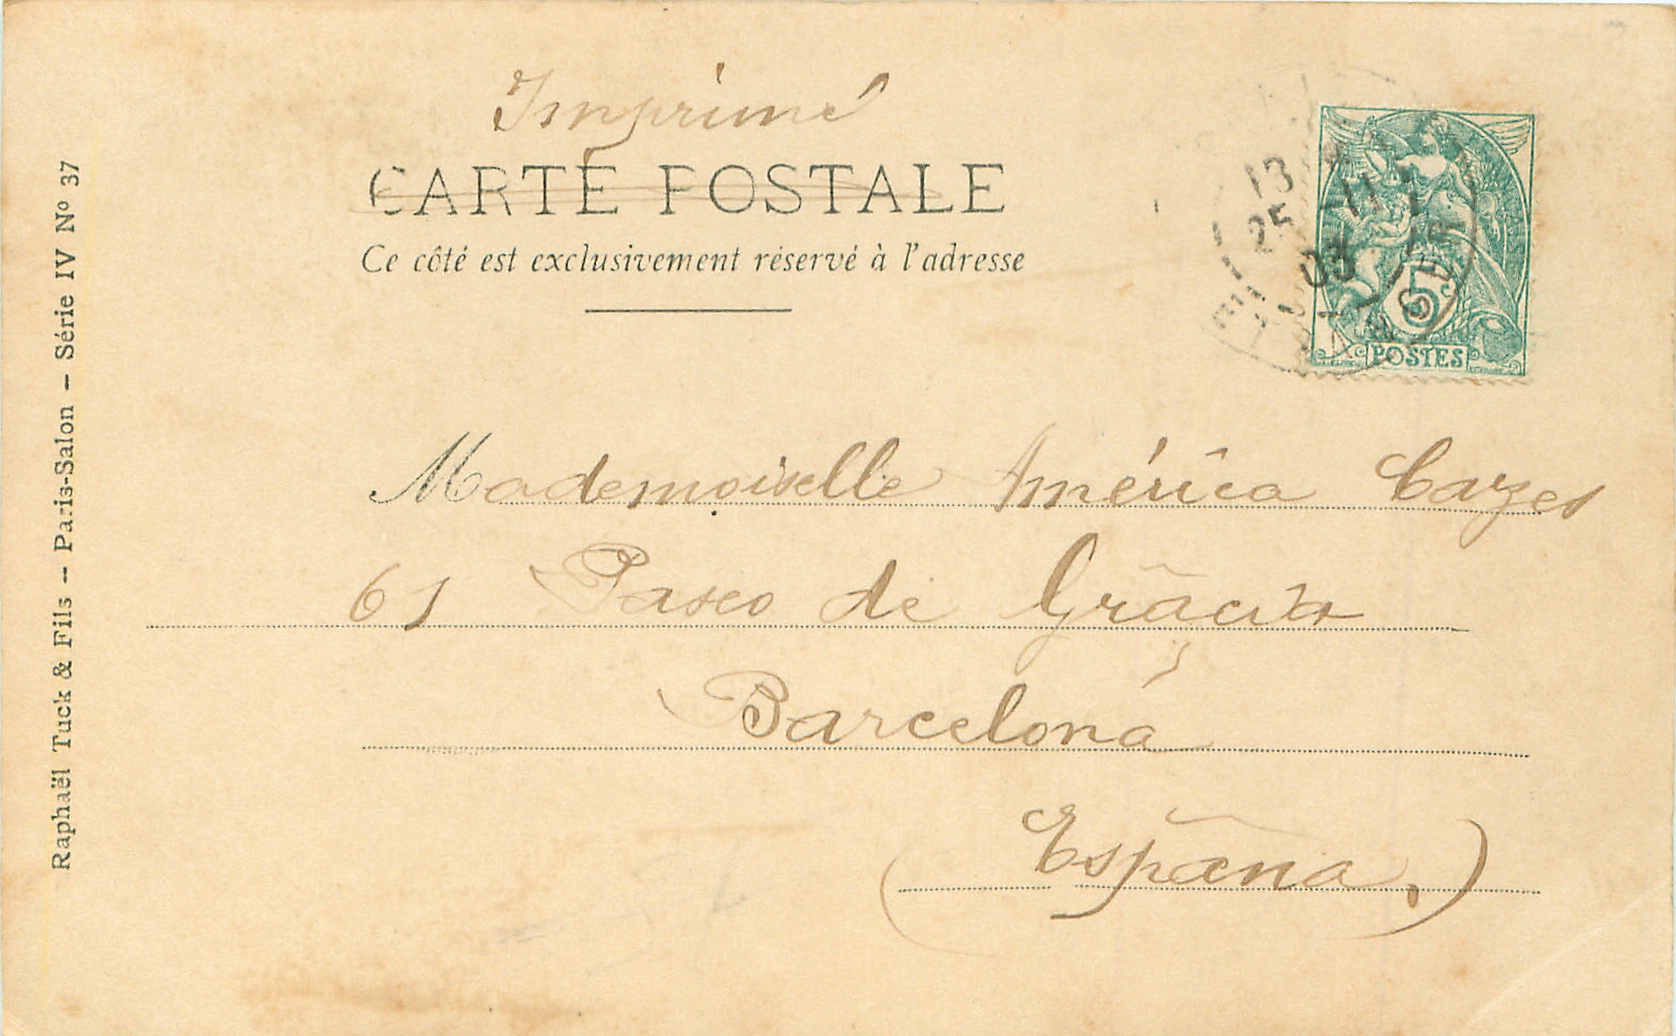 Imprimé
CARTE POSTALE
Ce côté est exclusivement réservé à l'adresse
13
25 -11
03
5c
POSTES
Mademoiselle América Cazes
61 Paseo de Grâcia
Barcelona
(España.)
Raphaël Tuck & Fils -- Paris-Salon -- Série IV Nº 37